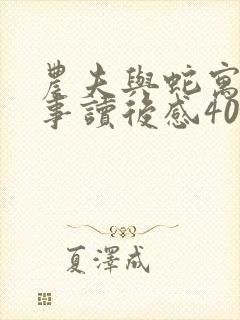 農夫與蛇寓
事讀後感40
夏澤成